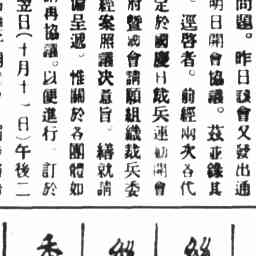 問題。昨日該會又發出通
明日開會協議。茲並錄其
。逕啓者。前經兩次各代
定於國慶日裁兵運動開會
府暨 會請願組織裁兵委
經案照議決意旨。繕就請
備呈遞。惟關於各團體如
請再協議。以便進行。訂於
翌日(十月十一日)午後二